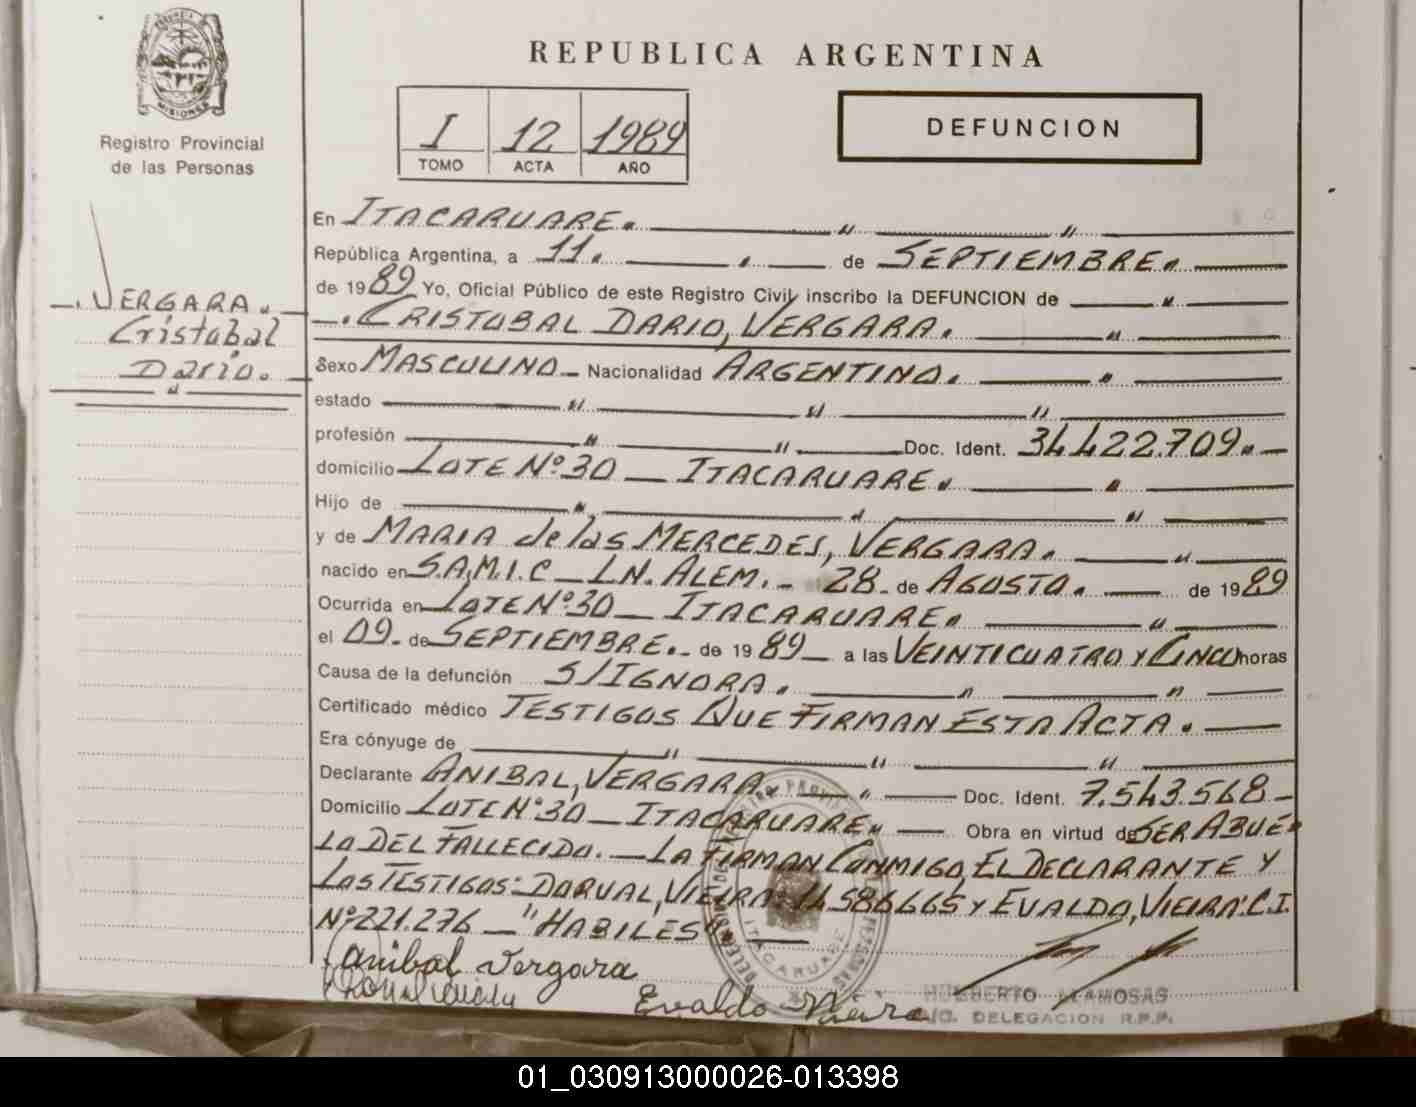 PROVINCIA DE
MISIONES
Registro Provincial
de las Personas
REPUBLICA ARGENTINA
I 12 1989
TOMO ACTA AÑO
DEFUNCION
En ITACARUARE.
República Argentina, a 11. de SEPTIEMBRE.
de 1989 Yo, Oficial Público de este Registro Civil, inscribo la DEFUNCION de
CRISTOBAL DARIO, VERGARA.
VERGARA.
Cristobal
Dario.
Sexo MASCULINO Nacionalidad ARGENTINO.
estado
profesión Doc. Ident. 34.422.709.
domicilio LOTE Nº 30 — ITACARUARE.
Hijo de
y de MARIA de las MERCEDES, VERGARA.
nacido en S.A.M.I.C — LN. ALEM. - 28 de AGOSTO. de 1989
Ocurrida en LOTE Nº 30 — ITACARUARE.
el 09 de SEPTIEMBRE. de 1989 a las VEINTICUATRO Y CINCO horas
Causa de la defunción S/IGNORA.
Certificado médico TESTIGOS QUE FIRMAN ESTA ACTA.
Era cónyuge de
Declarante ANIBAL, VERGARA. Doc. Ident. 7.543.568
Domicilio LOTE Nº 30 — ITACARUARE. Obra en virtud de SER ABUE-
LO DEL FALLECIDO. — LA FIRMAN CONMIGO, EL DECLARANTE Y
LOS TESTIGOS: DORVAL, VIEIRA: 14.586665 Y EVALDO, VIEIRA: C.I.
Nº 221.276 — "HABILES"
ITACARUARE
Anibal Vergara
Evaldo Vieira
HUMBERTO ALAMOSAS
DELEGACION R.P.P.
01_030913000026-013398